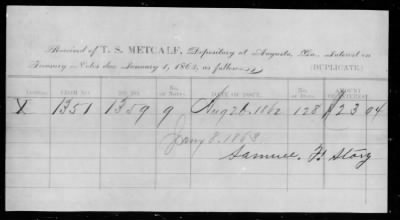 Received of T. S. METCALF, Depositary at Augusta, Ga. Interest on
Treasury Notes due January 1, 1863, as follows:
(DUPLICATE)
FROM NO. TO NO. No. of Notes. DATE OF ISSUE. No. of Days. AMOUNT OF INTEREST
X 1351 1359 9 Aug 26. 1862 128 $23 04
Jany 8. 1863
Samuel H. Story